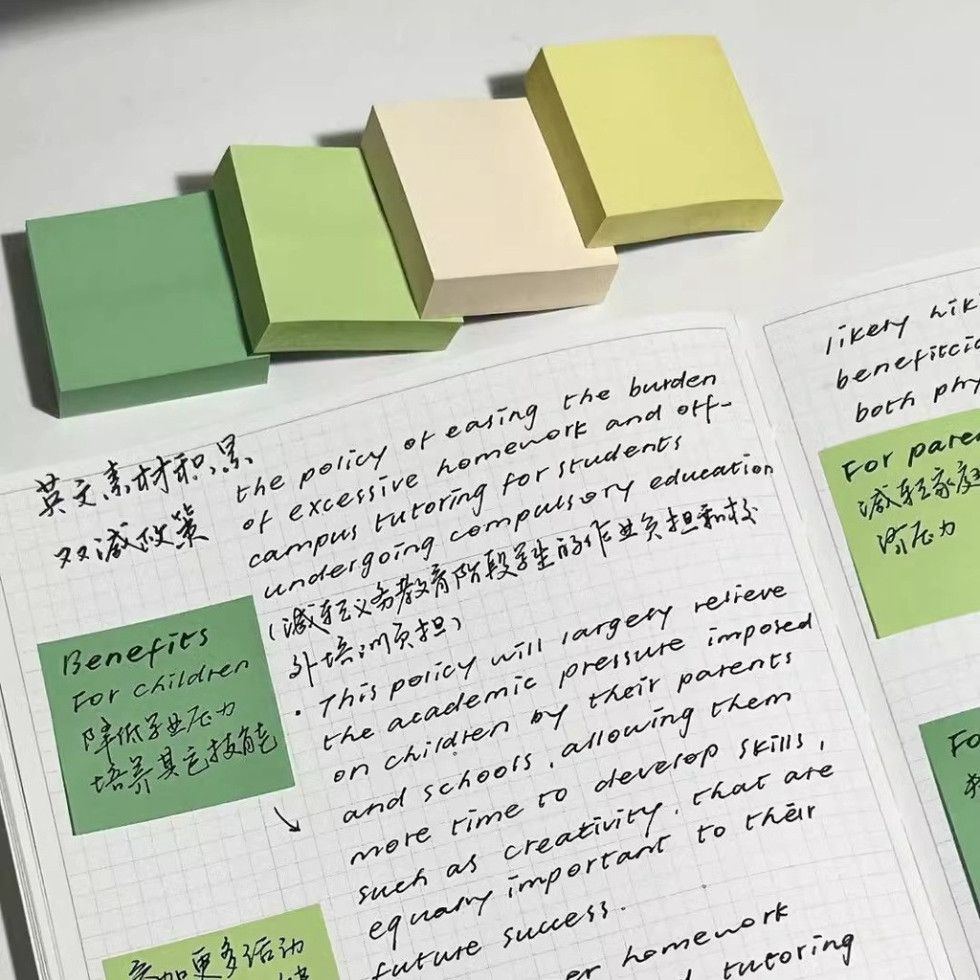 英文素材积累
双减政策
the policy of easing the burden
of excessive homework and off-
campus tutoring for students
undergoing compulsory education
(减轻义务教育阶段学生的作业负担和校
外培训负担)
Benefits
For children
降低学业压力
培养其它技能
· This policy will largely relieve
the academic pressure imposed
on children by their parents
and schools, allowing them
more time to develop skills,
such as creativity, that are
equally important to their
future success.
参加更多活动
er homework
tutoring
likely
both
For
减轻家庭
济压力
Fo